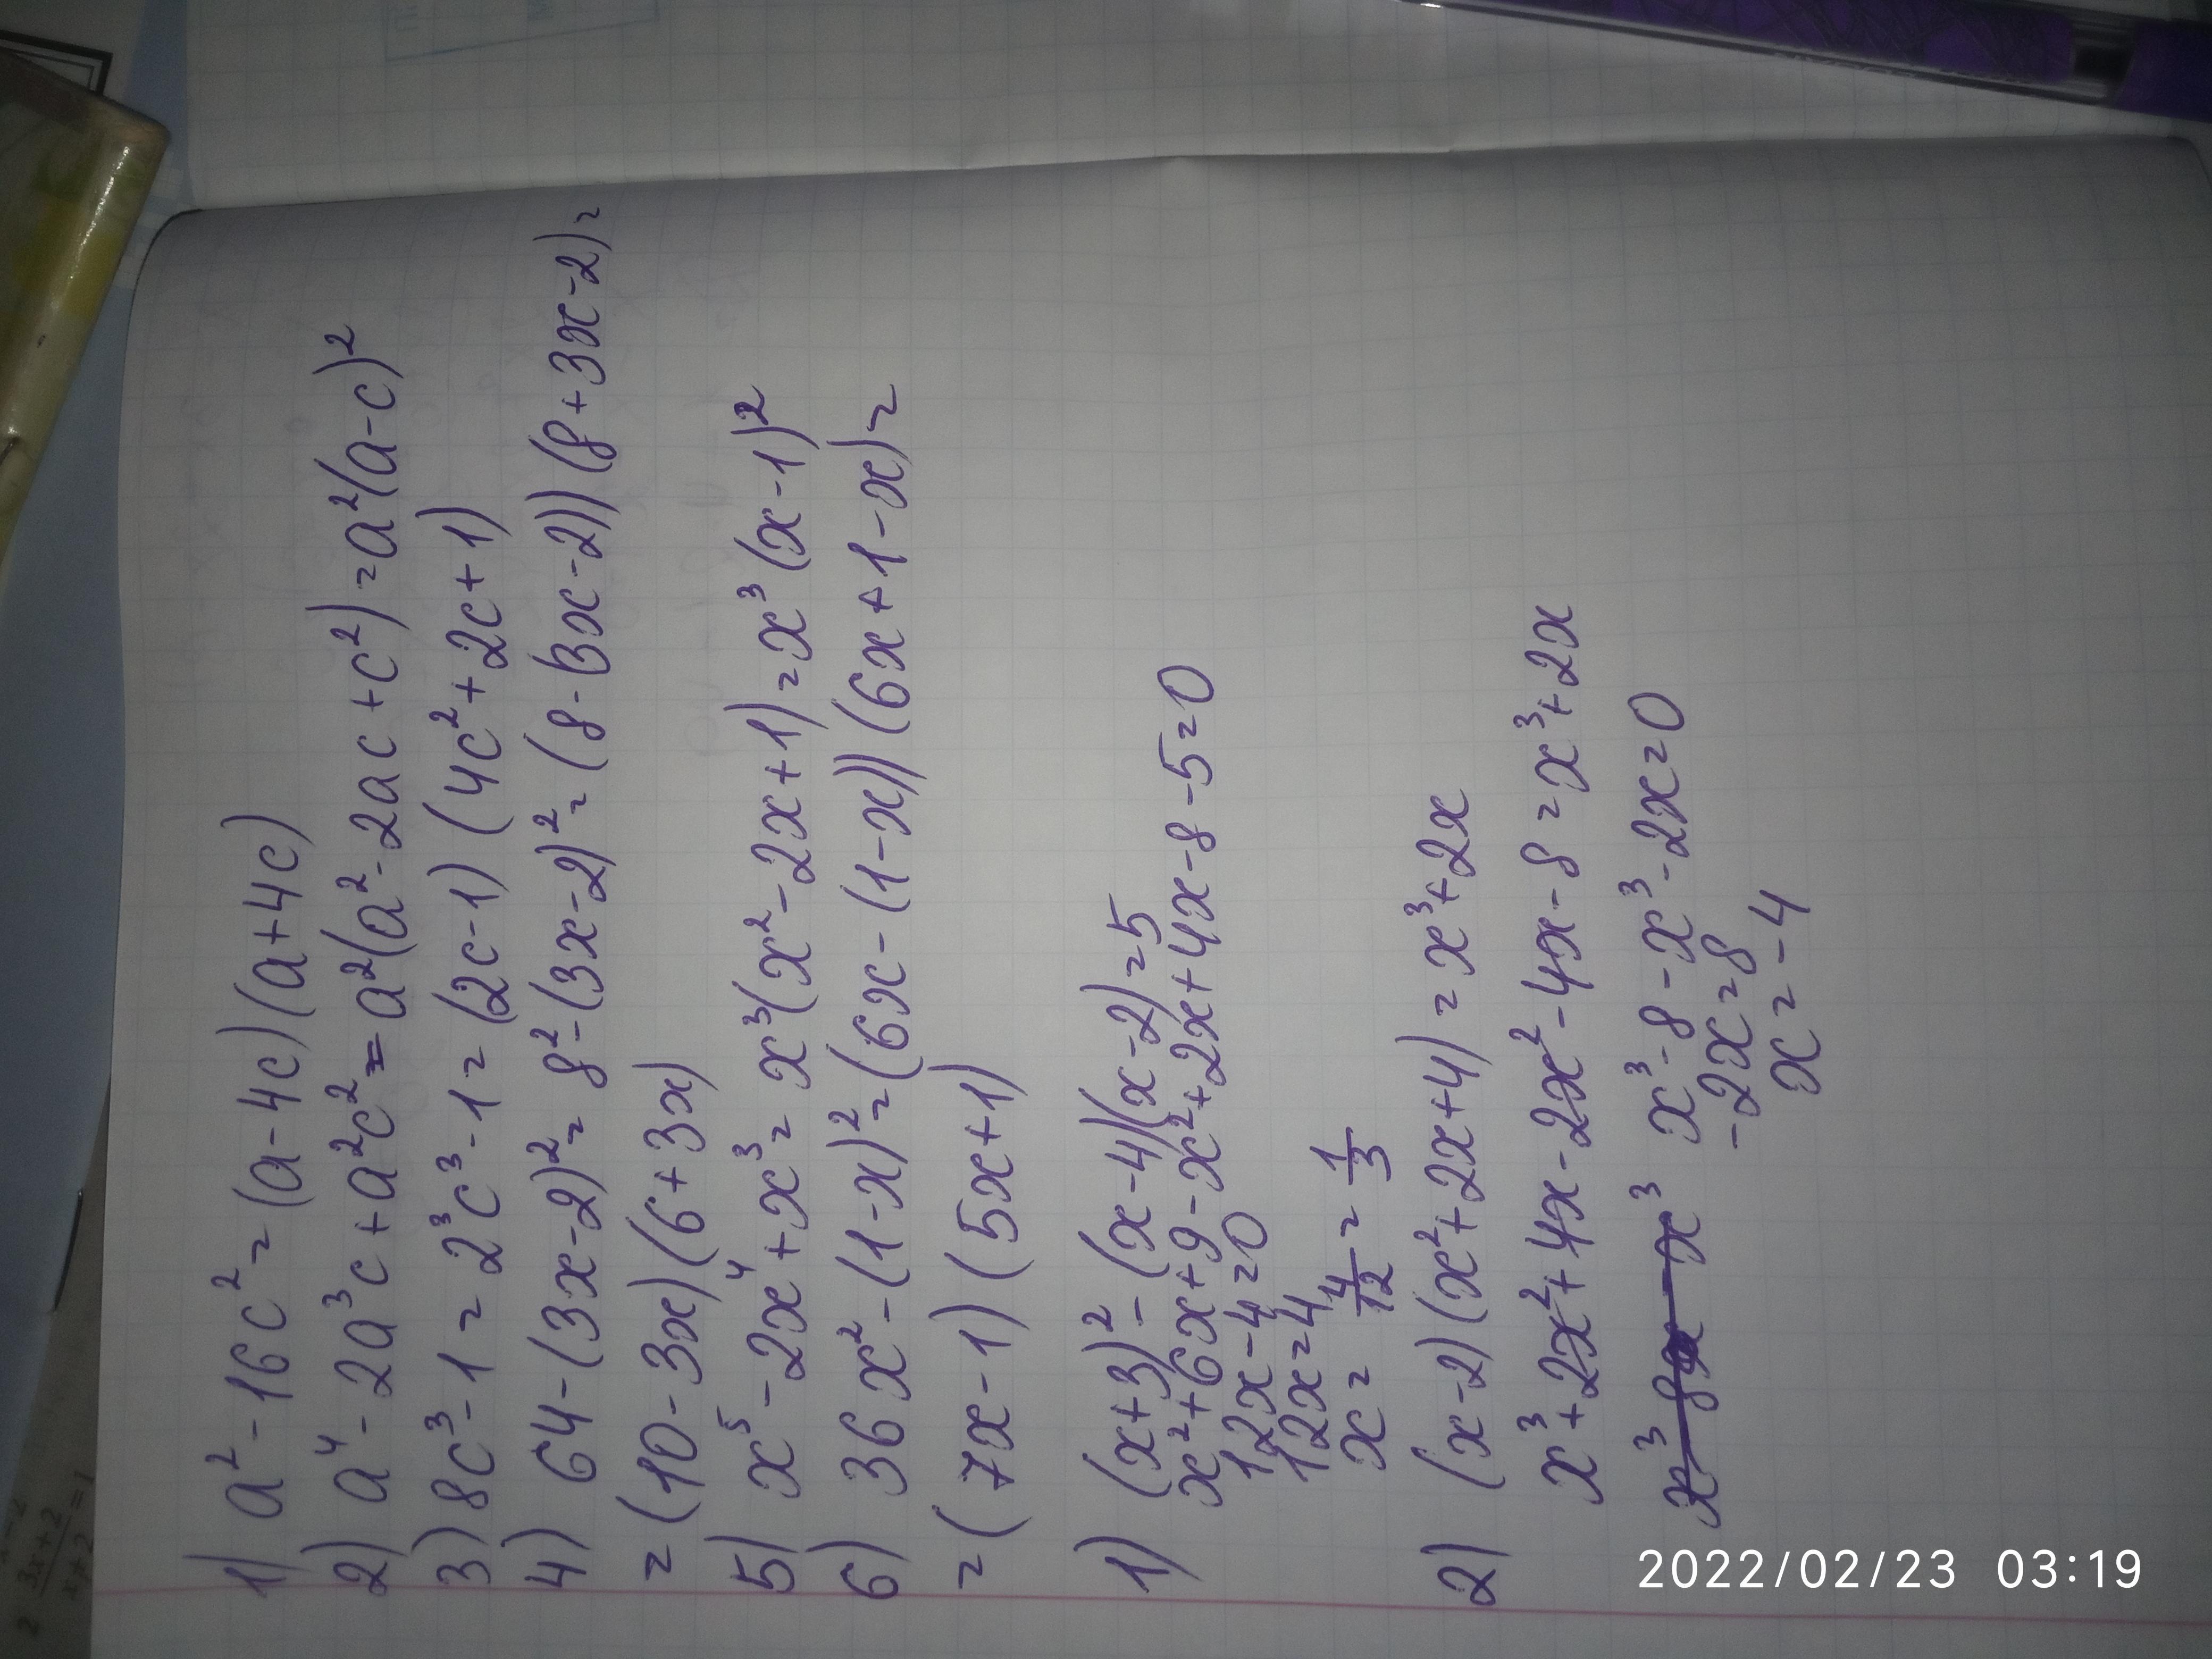 1) a²-16c²=(a-4c)(a+4c)
2) a⁴-2a³c+a²c²=a²(a²-2ac+c²)=a²(a-c)²
3) 8c³-1=2³c³-1=(2c-1)(4c²+2c+1)
4) 64-(3x-2)²=8²-(3x-2)²=(8-(3x-2))(8+3x-2)=
=(10-3x)(6+3x)
5) x⁵-2x⁴+x³=x³(x²-2x+1)=x³(x-1)²
6) 36x²-(1-x)²=(6x-(1-x))(6x+1-x)=
=(7x-1)(5x+1)
1) (x+3)²-(x-4)(x-2)=5
x²+6x+9-x²+2x+4x-8-5=0
12x-4=0
12x=4
x=4/12=1/3
2) (x-2)(x²+2x+4)=x³+2x
x³+2x²+4x-2x²-4x-8=x³+2x
x³-8-x³-2x=0
-2x=8
x=-4
2022/02/23 03:19